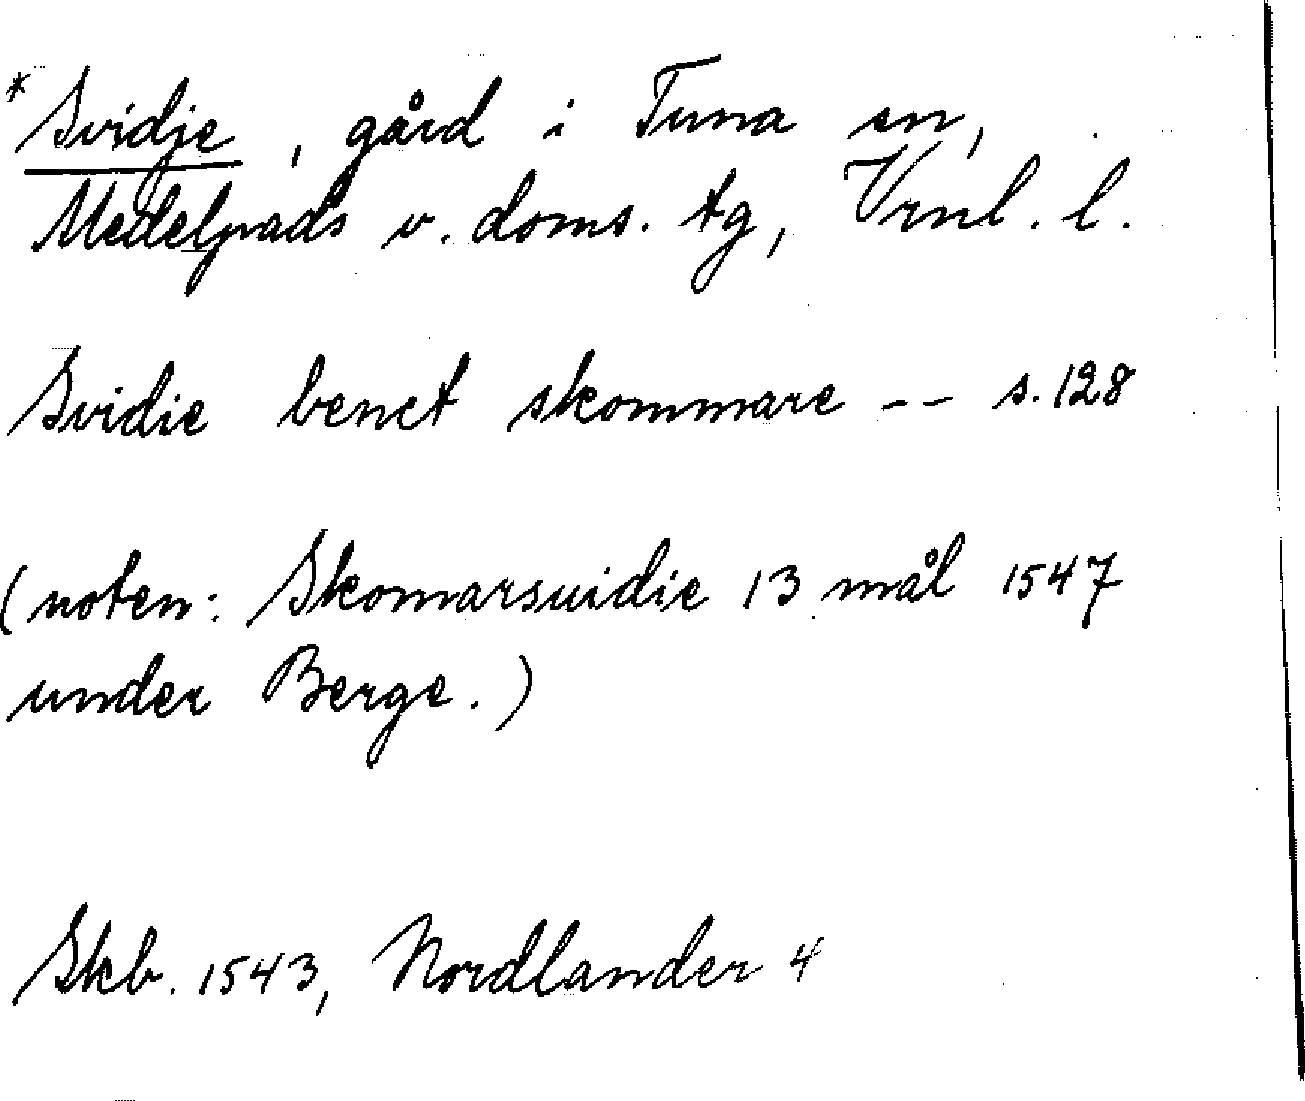 *Svidje, gård i Tuna sn,
Medelpads v. doms. tg, Vrnl. l.
Svidie benct skommare -- s. 128
(noten: Skomarsuidie 13 mål 1547
under Berge.)
Skb. 1543, Nordlander 4